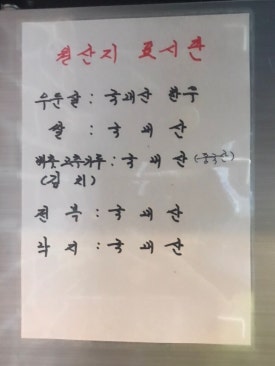 원산지 표시판
우둔살 : 국내산 한우
쌀 : 국내산
배추, 고추가루 : 국내산 (중국산)
(김치)
전복 : 국내산
낙지 : 국내산